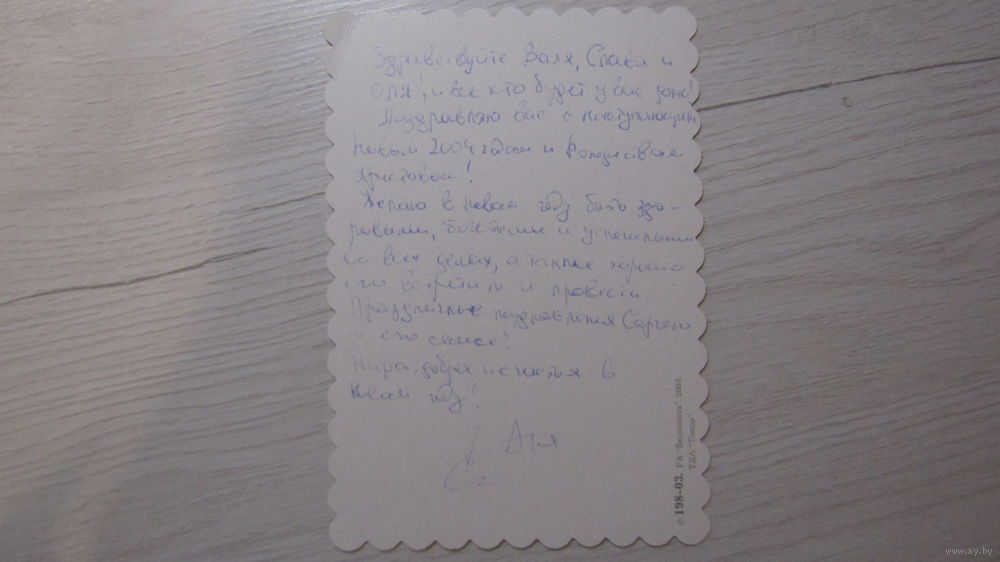 Здравствуйте Валя, Слава и
Оля!, и все кто будет у вас дома!
Поздравляю вас с наступающим
Новым 2004 годом и Рождеством
Христовым!
Желаю в новом году быть здо-
ровыми, богатыми и успешными
во всех делах, а также хорошо
его встретить и провести.
Праздничные поздравления Сергею
и его семье!
Мира, добра, и счастья в
Новом году!
Аня
© 198-03. РА "Белпошта" 2003
ТДА "Тонда"
www.ay.by